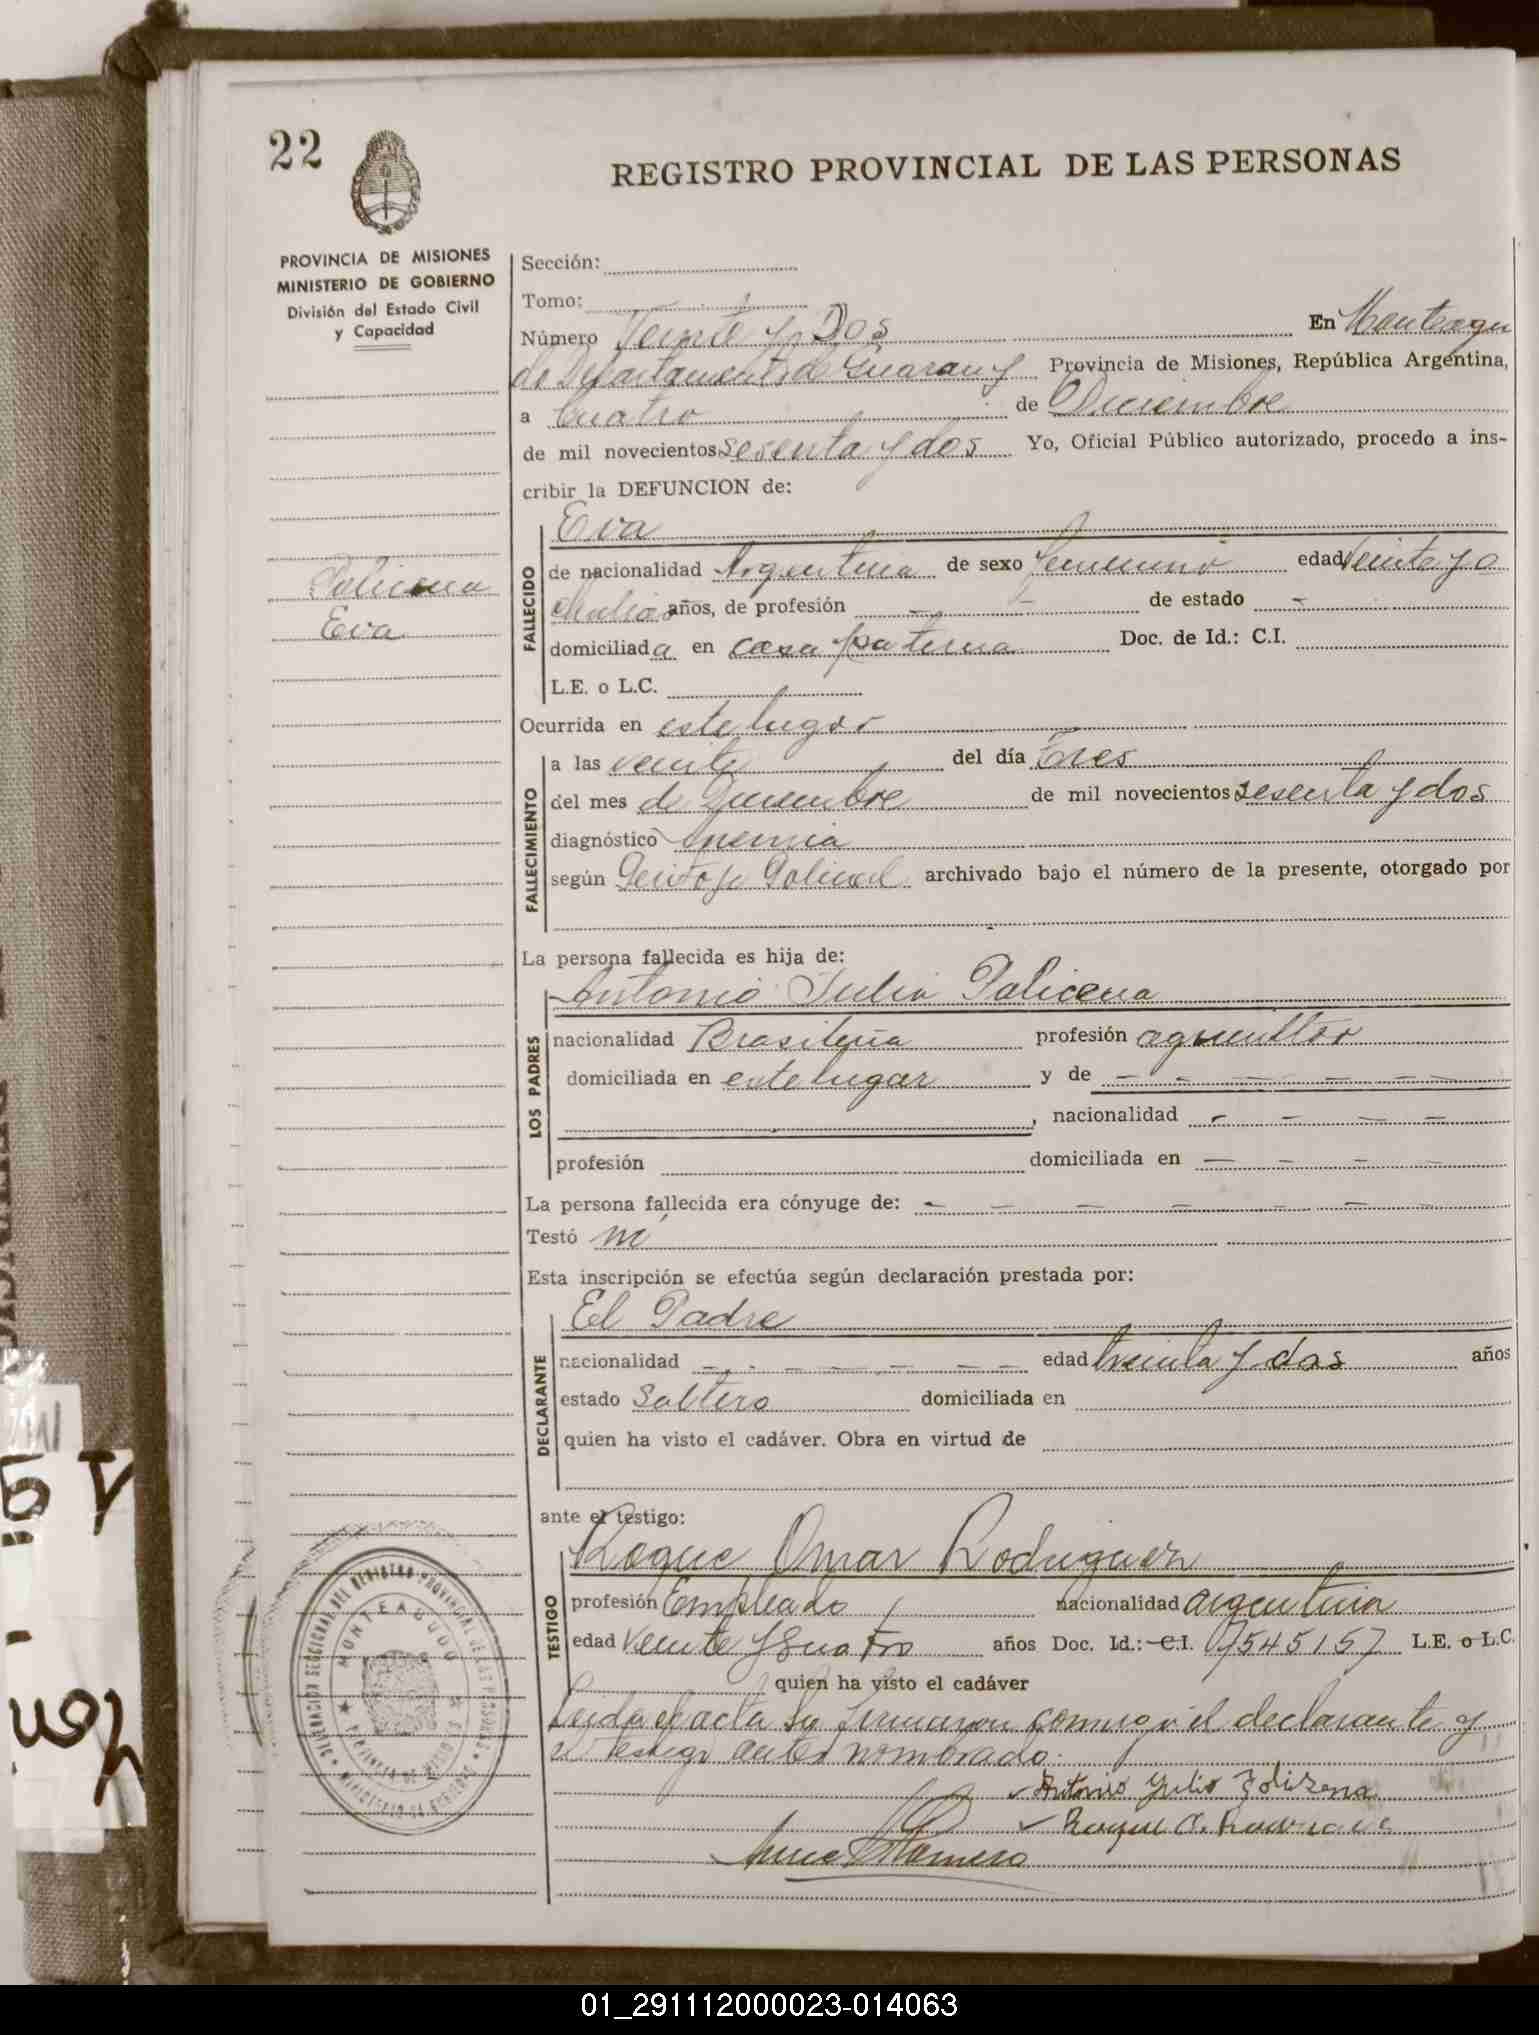 22
REGISTRO PROVINCIAL DE LAS PERSONAS
PROVINCIA DE MISIONES
MINISTERIO DE GOBIERNO
División del Estado Civil
y Capacidad
Policena
Eva
Sección:
Tomo:
Número Veinte y Dos En Monteagu
do Departamento de Guarany Provincia de Misiones, República Argentina,
a Cuatro de Diciembre
de mil novecientos sesenta y dos Yo, Oficial Público autorizado, procedo a ins-
cribir la DEFUNCION de:
FALLECIDO
Eva
de nacionalidad Argentina de sexo femenino edad Veinte y o
años, de profesión - - de estado -
domiciliada en casa paterna Doc. de Id.: C.I.
L.E. o L.C.
Ocurrida en este lugar
FALLECIMIENTO
a las veinte del día Tres
del mes de Diciembre de mil novecientos sesenta y dos
diagnóstico Anemia
según Policial archivado bajo el número de la presente, otorgado por
La persona fallecida es hija de:
LOS PADRES
Antonio Julio Policena
nacionalidad Brasileña profesión agricultor
domiciliada en este lugar y de - - - - - -
, nacionalidad - - - -
profesión domiciliada en - - - -
La persona fallecida era cónyuge de: - - - - - - -
Testó
Esta inscripción se efectúa según declaración prestada por:
DECLARANTE
El Padre
nacionalidad - - - - - - edad treinta y dos años
estado soltero domiciliada en
quien ha visto el cadáver. Obra en virtud de
ante el testigo:
TESTIGO
Roque Omar Rodriguez
profesión Empleado nacionalidad argentina
edad veinte y cuatro años Doc. Id.: C.I. 7545157 L.E. o L.C.
quien ha visto el cadáver
Leida el acta la firmaron conmigo el declarante y
el testigo antes nombrado.
Antonio Julio
Roque O.
Romero
DELEGACION SECCIONAL DEL REGISTRO PROVINCIAL DE LAS PERSONAS
MONTEAGUDO
PROVINCIA DE MISIONES
MINISTERIO DE GOBIERNO
01_291112000023-014063